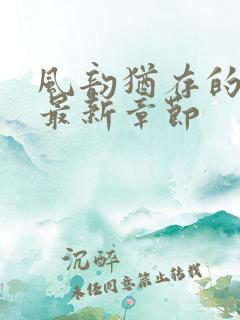 风韵犹存的
最新章节
沉醉
未经同意禁止转载